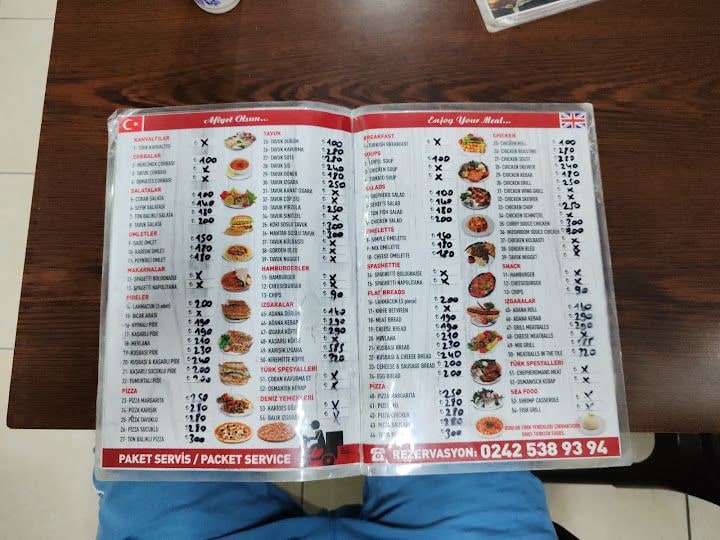 Afiyet Olsun...
KAHVALTILAR
1- TÜRK KAHVALTISI X
CORBALAR
2- MERCİMEK CORBASI 100
3- TAVUK CORBASI X
4- DOMATES CORBASI X
SALATALAR
5- ÇOBAN SALATA 100
6- ŞEFİN SALATASI 140
7- TON BALIKLI SALATA 180
8- TAVUK SALATA 200
OMLETLER
9- SADE OMLET 150
10- KARIŞIK OMLET 180
11- PEYNİRLİ OMLET 180
MAKARNALAR
12- SPAGETTİ BOLOGNAISE X
13- SPAGETTİ NAPOLITANA X
PIDELER
14- LAHMACUN (3 adet) 200
15- BICAK ARASI X
16- KIYMALI PİDE 190
17- KAŞARLI PİDE 190
18- MEVLANA 210
19- KUŞBAŞI PİDE 230
20- KUŞBAŞI & KAŞARLI PİDE 240
21- KAŞARLI SUCUKLU PİDE 200
22- YUMURTALI PİDE
PİZZA
23- PİZZA MARGARITA 250
24- PİZZA KARIŞIK 280
25- PİZZA TAVUKLU 280
26- PİZZA SUCUKLU 280
27- TON BALIKLI PİZZA 300
TAVUK
25- TAVUK DÜRÜM 100
26- TAVUK KAVURMA 280
27- TAVUK SOTE 280
28- TAVUK ŞİŞ 240
29- TAVUK DÖNER 180
30- TAVUK IZGARA 250
31- TAVUK KANAT IZGARA X
32- TAVUK ÇÖP ŞİŞ X
33- TAVUK PİRZOLA 250
34- TAVUK ŞİNİTZEL X
35- KÖRİ SOSLU TAVUK 300
36- MANTAR SOSLU TAVUK 300
37- TAVUK KÜLBASTI X
38- GORDEN BLEU X
39- TAVUK NUGGET X
HAMBURGERLER
11- HAMBURGER X
12- CHEESEBURGER X
13- CHIPS 90
IZGARALAR
45- ADANA DÜRÜM 140
46- ADANA KEBAP 290
47- IZGARA KÖFTE 290
48- KAŞARLI KÖFTE X
49- KARIŞIK IZGARA 585
50- KİREMİTTE KÖFTE 320
TÜRK SPESYALLERİ
51- ÇOBAN KAVURMA ET X
52- OSMANLI KEBAP X
DENİZ YEMEKLERİ
53- KARİDES GÜVEÇ
54- BALIK IZGARA
PAKET SERVİS / PACKET SERVICE
Enjoy Your Meal...
BREAKFAST
1- TURKISH BREAKFAST X
SOUPS
2- LENTIL SOUP 100
3- CHICKEN SOUP X
4- TOMATO SOUP X
SALADS
5- SHEPHERD SALAD 100
6- CHEEF'S SALAD 140
7- TON FISH SALAD 180
8- CHICKEN SALAD 200
OMELETTE
8- SIMPLE OMLETTE 150
9- MIX OMLETTE 180
10- CHEESE OMLETTE 180
SPAGHETTIE
16- SPAGHETTI BOLOGNAISE X
15- SPAGHETTI NAPOLITANA X
FLAT BREADS
16- LAHMACUN (3 piece) 200
17- KNIFE BETWEEN X
18- MEAT BREAD 190
19- CHEESE BREAD 190
20- MEVLANA 210
21- KUSBASI BREAD 230
22- KUSBASI & CHEESE BREAD 240
23- CHEESE & SAUSAGE BREAD 200
24- EGG BREAD 200
PIZZA
40- PIZZA MARGARITA 250
41- PIZZA MIX 280
42- PIZZA CHICKEN 280
43- PIZZA SAUSAGE 280
44- TON 300
CHICKEN
25- CHICKEN ROLL 100
26- CHICKEN ROASTING 280
27- CHICKEN SOUTE 280
28- CHICKEN SKEWER 240
29- CHICKEN KEBAB 180
30- CHICKEN GRILL 250
31- CHICKEN WING GRILL X
32- CHICKEN SKEWER X
33- CHICKEN CHOP 250
34- CHICKEN SCHNITZEL X
35- CURRY SOUCE CHICKEN 300
36- MUSHROOM SOUCE CHICKEN 300
37- CHICKEN KULBASTI X
38- GORDEN BLEU X
39- TAVUK NUGGET X
SNACK
11- HAMBURGER X
12- CHEESEBURGER X
13- CHIPS 90
IZGARALAR
45- ADANA ROLL 140
46- ADANA KEBAB 290
47- GRILL MEATBALLS 290
48- CHEESE MEATBALLS X
49- MIX GRILL
50- MEATBALLS IN THE TILE 320
TÜRK SPESYALLERİ
51- CHEPHERDMANS MEAT X
52- OSMANISCH KEBAP X
SEA FOOD
53- SHRIMP CASSEROLE X
54- FISH GRILL X
GÜNLÜK TÜRK YEMEKLERİ ÇIKMAKTADIR
DAILY TURKISH FOODS
REZERVASYON: 0242 538 93 94